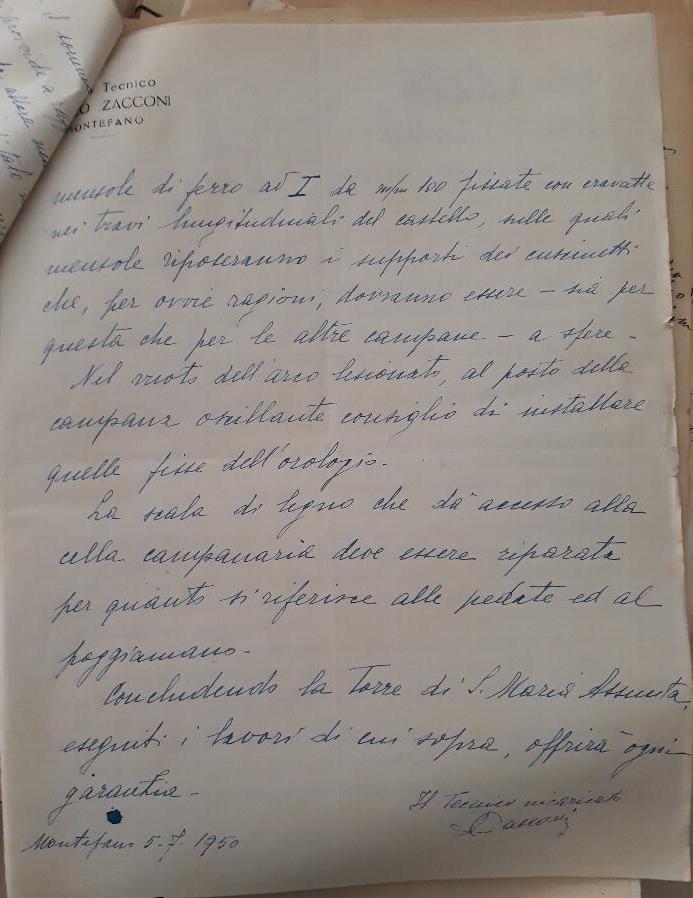 Tecnico
ZACCONI
MONTEFANO
mensole di ferro ad I da m/m 100 fissate con cravatte
nei travi longitudinali del castello, sulle quali
mensole riposeranno i supporti dei cuscinetti
che, per ovvie ragioni, dovranno essere - sia per
questa che per le altre campane - a sfere -
Nel vuoto dell'arco lesionato, al posto della
campana oscillante consiglio di installare
quelle fisse dell'orologio.
La scala di legno che dà accesso alla
cella campanaria deve essere riparata
per quanto si riferisce alle pedate ed al
poggiamano -
Concludendo la Torre di S. Maria Assunta,
eseguiti i lavori di cui sopra, offrirà ogni
garanzia -
Il Tecnico incaricato
Zacconi
Montefano 5-7-1950